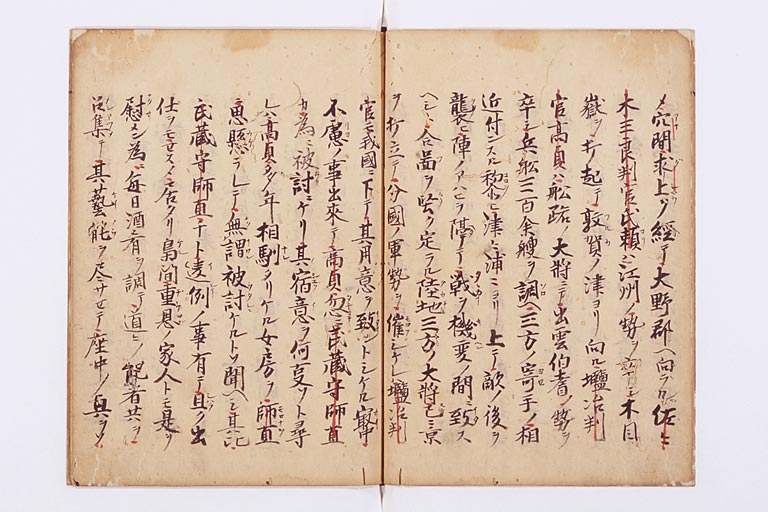 メ穴間求上ヲ經テ大野郡ヘ向ラル佐々
木三良判官氏頼ハ江州ノ勢ヲ卒シテ木目
嶽ヲ打起テ敦賀ノ津ヨリ向ル塩冶判
官高貞ハ舩路ノ大將ニテ出雲伯耆ノ勢ヲ
卒シ兵舩三百余艘ヲ調ヘ三方ノ寄手ノ相
近付ンスル比 津々浦々ヨリ上テ敵ノ後ヲ
襲ヒ陣ノアハヒヲ隔テ戰ヲ機変ノ間ニ致ス
ヘシト合図ヲ堅ク定ラル陸地三方ノ大將已ニ京
ヲ打立テ分國ノ軍勢ヲ催シケレ 塩冶判
官モ我國ニ下テ其用意ヲ致ントシケル
不慮ノ事出來テ高貞忽ニ武蔵守師直
カ為ニ被討ニケリ其宿意ヲ何支ソト尋
レハ高貞多ノ年相馴タリケル女房ヲ師直
思懸ラレテ無謂被討ケルトソ聞ヘシ其記
武蔵守師直 違例ノ事有テ且ク出
仕ヲモセスメ居タリ 間重恩ノ家人トモ是ヲ
慰メン為ニ毎日酒肴ヲ調テ道々ノ能者共ヲ
召集テ其藝能ヲ尽サセテ座中ノ興ヲソ